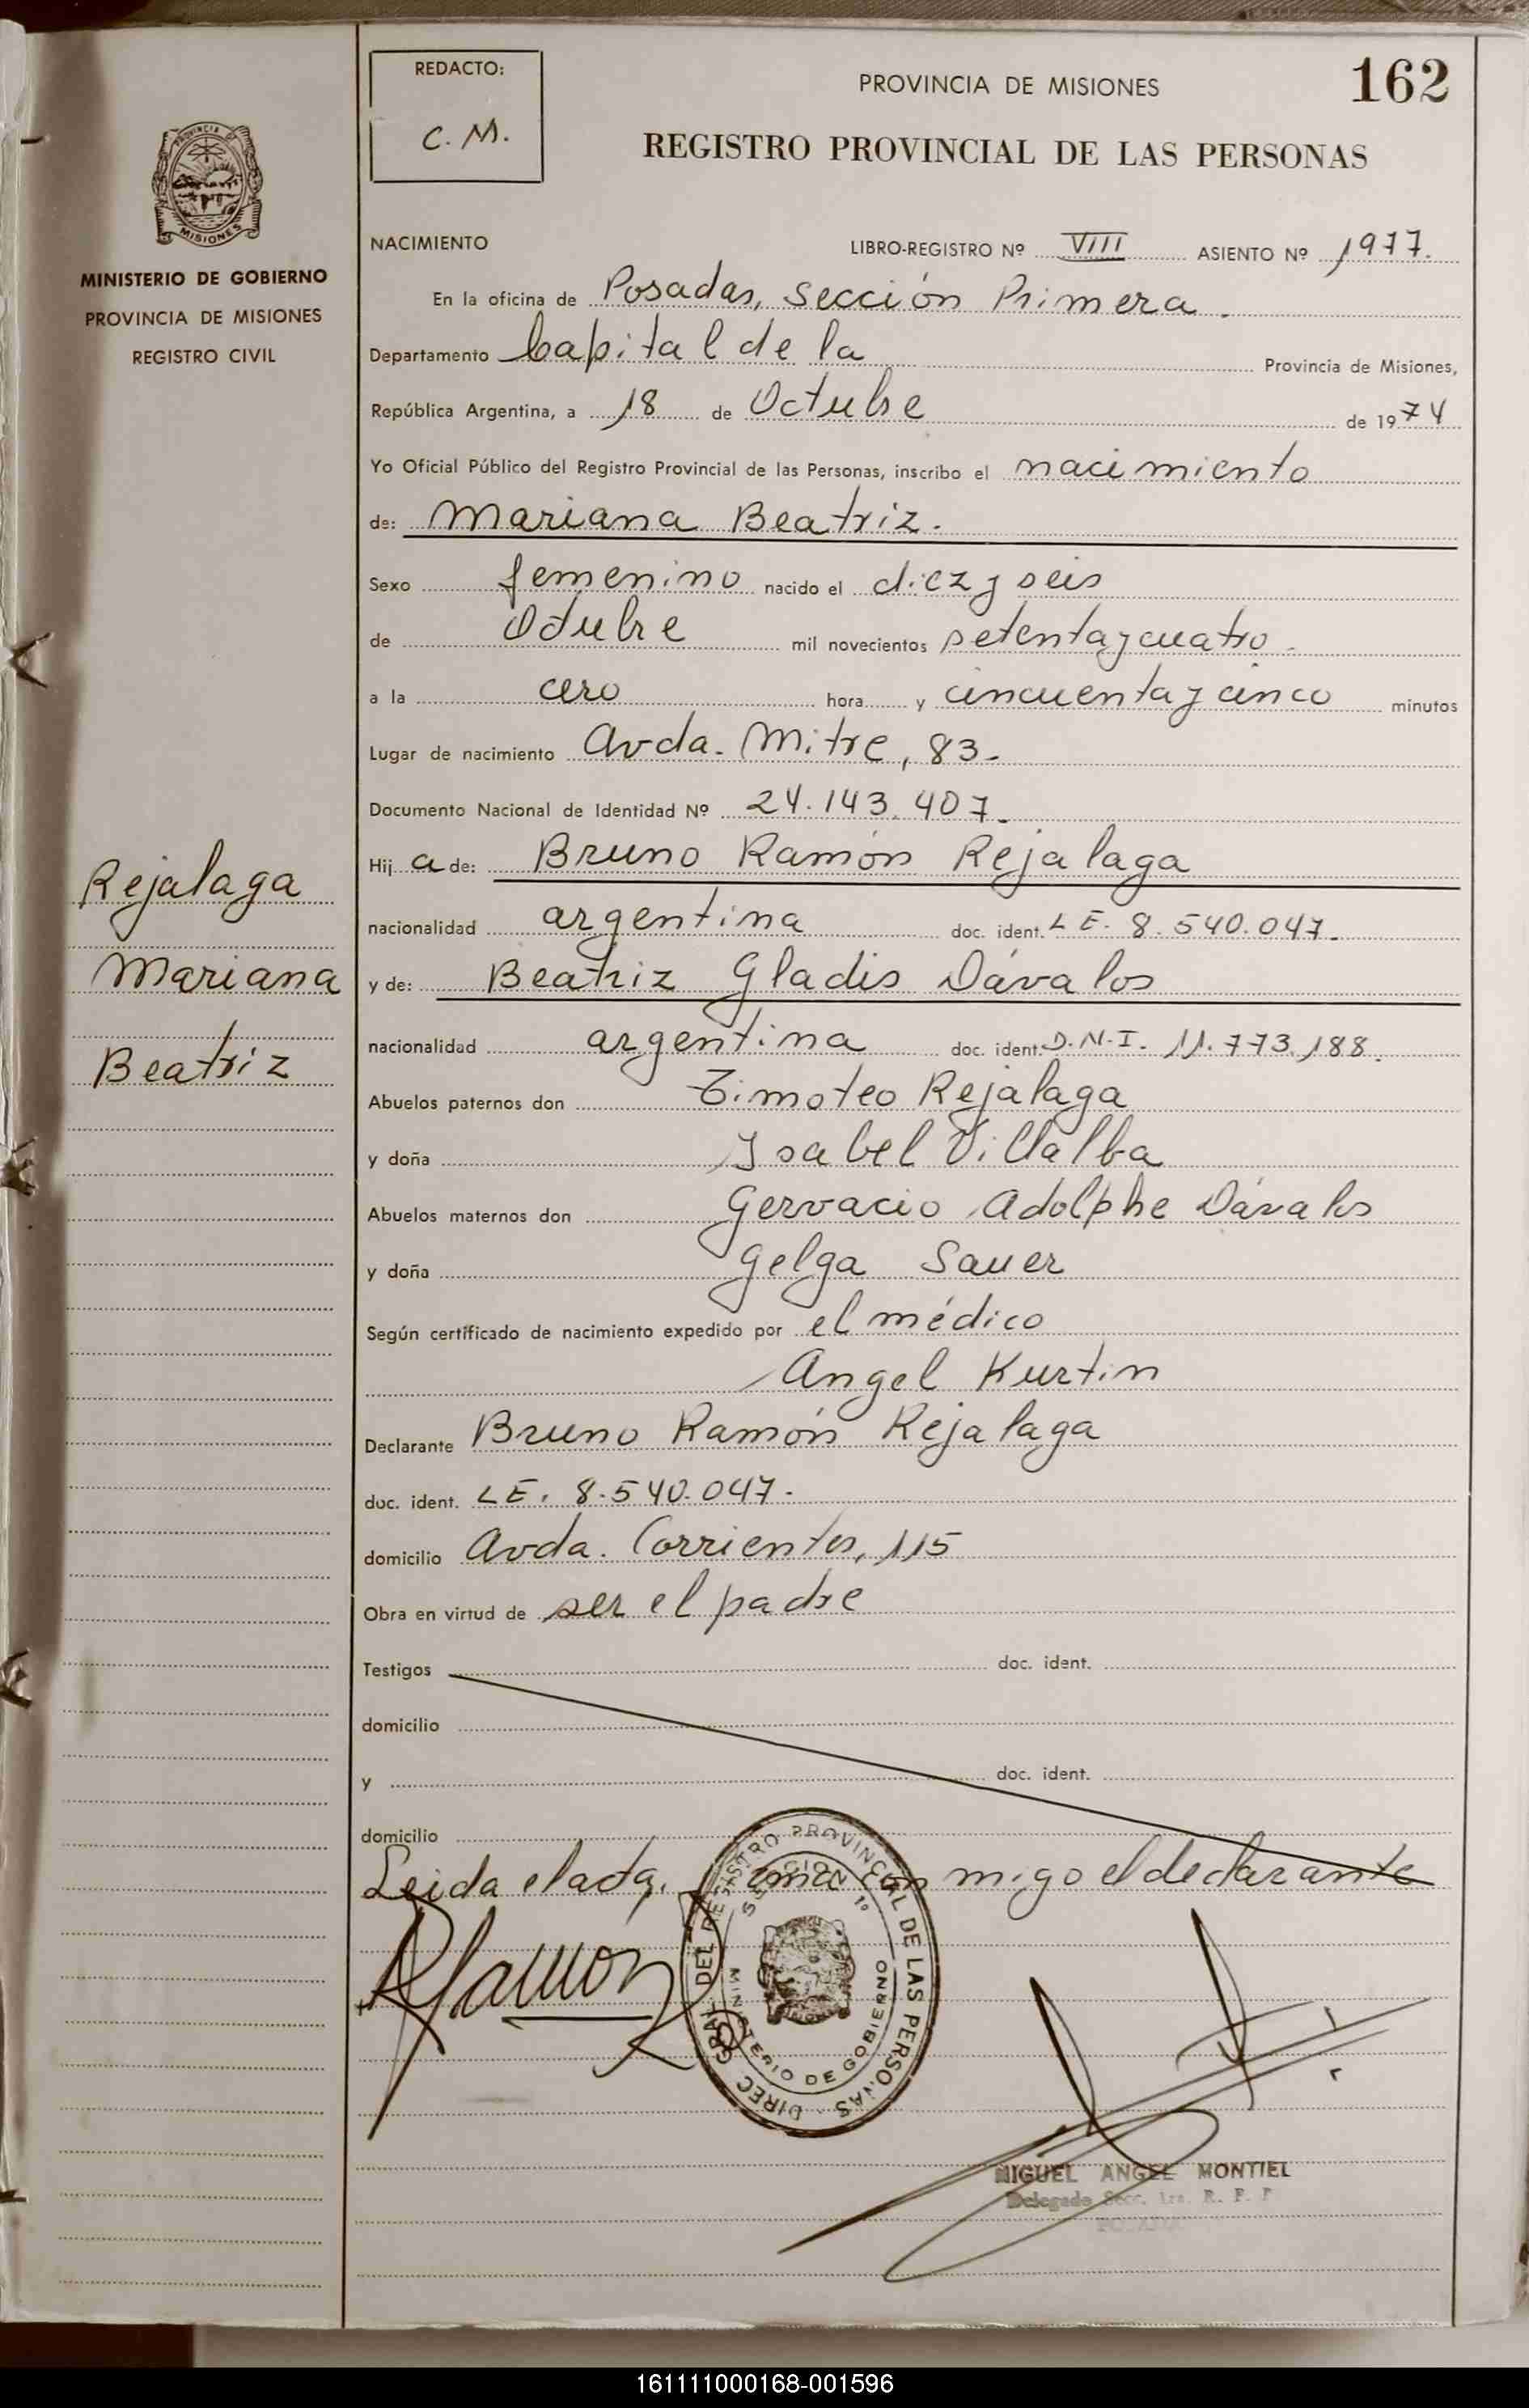 REDACTO:
C. M.
PROVINCIA DE MISIONES
162
REGISTRO PROVINCIAL DE LAS PERSONAS
MISIONES
MINISTERIO DE GOBIERNO
PROVINCIA DE MISIONES
REGISTRO CIVIL
Rejalaga
Mariana
Beatriz
NACIMIENTO LIBRO-REGISTRO Nº VIII ASIENTO Nº 1977.
En la oficina de Posadas, Sección Primera.
Departamento Capital de la Provincia de Misiones,
República Argentina, a 18 de Octubre de 1974
Yo Oficial Público del Registro Provincial de las Personas, inscribo el nacimiento
de: Mariana Beatriz.
Sexo femenino nacido el diez y seis
de Octubre mil novecientos setenta y cuatro.
a la cero hora y cincuenta y cinco minutos
Lugar de nacimiento Avda. Mitre, 83-
Documento Nacional de Identidad Nº 24.143.407-
Hij a de: Bruno Ramón Rejalaga
nacionalidad argentina doc. ident. LE. 8.540.047-
y de: Beatriz Gladis Dávalos
nacionalidad argentina doc. ident. D.N.I. 11.773.188.
Abuelos paternos don Timoteo Rejalaga
y doña Isabel Villalba
Abuelos maternos don Gervacio Adolphe Dávalos
y doña Gelga Sauer
Según certificado de nacimiento expedido por el médico
Angel Kurtin
Declarante Bruno Ramón Rejalaga
doc. ident. LE. 8.540.047-
domicilio Avda. Corrientes, 115
Obra en virtud de ser el padre
Testigos doc. ident.
domicilio
y doc. ident.
domicilio
Leida el acta, firma con migo el declarante
DIREC GRAL DEL REGISTRO PROVINCIAL DE LAS PERSONAS
SECCION 1º
MINISTERIO DE GOBIERNO
MIGUEL ANGEL MONTIEL
Delegado Secc. 1ra. R. P. P
161111000168-001596